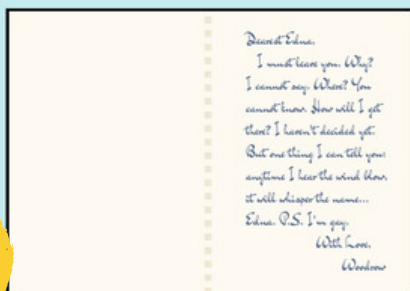 Dearest Edna,
I must leave you. Why?
I cannot say. Where? You
cannot know. How will I get
there? I haven't decided yet.
But one thing I can tell you:
anytime I hear the wind blow,
it will whisper the name...
Edna. P.S. I'm gay.
With Love,
Woodrow